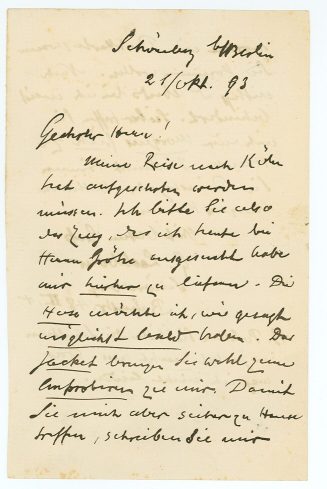 Schöneberg b/Berlin
21/Okt. 93
Geehrter Herr!
Meine Reise nach Köln
hat aufgeschoben werden
müssen. Ich bitte Sie also
das Zeug, das ich heute bei
Herrn Grötze ausgesucht habe
mir hierher zu liefern. Die
Hose möchte ich, wie gesagt
möglichst bald haben. Das
Jacket bringen Sie wohl zum
Anprobiren zu mir. Damit
Sie mich aber sicher zu Hause
treffen, schreiben Sie mir